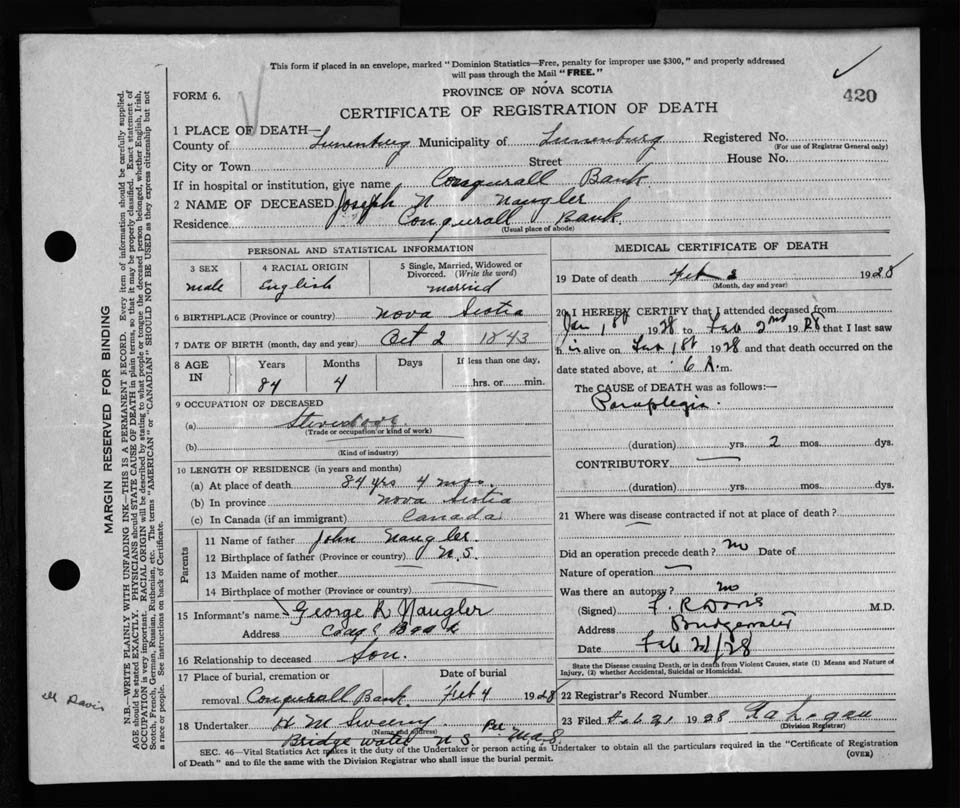 This form if placed in an envelope, marked "Dominion Statistics—Free, penalty for improper use $300," and properly addressed
will pass through the Mail "FREE."
FORM 6.
PROVINCE OF NOVA SCOTIA
420
CERTIFICATE OF REGISTRATION OF DEATH
1 PLACE OF DEATH—
County of Lunenburg Municipality of Lunenburg Registered No.
(For use of Registrar General only)
City or Town Street House No.
If in hospital or institution, give name Conquerall Bank
2 NAME OF DECEASED Joseph N Naugler
Residence Conquerall Bank
(Usual place of abode)
PERSONAL AND STATISTICAL INFORMATION
3 SEX 4 RACIAL ORIGIN 5 Single, Married, Widowed or
Divorced. (Write the word)
male English married
6 BIRTHPLACE (Province or country) Nova Scotia
7 DATE OF BIRTH (month, day and year) Oct 2 1843
8 AGE IN Years Months Days If less than one day,
84 4 hrs. or min.
9 OCCUPATION OF DECEASED
(a)
(Trade or occupation or kind of work)
(b)
(Kind of industry)
10 LENGTH OF RESIDENCE (in years and months)
(a) At place of death 84 yrs 4 mos.
(b) In province Nova Scotia
(c) In Canada (if an immigrant) Canada
Parents
11 Name of father John Naugler.
12 Birthplace of father (Province or country) N.S.
13 Maiden name of mother
14 Birthplace of mother (Province or country)
15 Informant's name George R Naugler
Address Bank
16 Relationship to deceased Son.
17 Place of burial, cremation or Date of burial
removal Conqurall Bank Feb 4 1928
18 Undertaker H M Sweeny Per
(Name and address)
Bridgewater N S
MEDICAL CERTIFICATE OF DEATH
19 Date of death Feb 2 1928
(Month, day and year)
20 I HEREBY CERTIFY that I attended deceased from
Jan 1st 1928 to Feb 2nd 1928 that I last saw
h im alive on Feb 1st 1928 and that death occurred on the
date stated above, at 6 A.m.
The CAUSE of DEATH was as follows:—
Paraplegia.
(duration) yrs. 2 mos. dys.
CONTRIBUTORY
(duration) yrs. mos. dys.
21 Where was disease contracted if not at place of death?
Did an operation precede death? no Date of
Nature of operation
Was there an autopsy? no
(Signed) F. R Davis M.D.
Address Bridgewater
Date Feb /28
State the Disease causing Death, or in death from Violent Causes, state (1) Means and Nature of
Injury, (2) whether Accidental, Suicidal or Homicidal.
22 Registrar's Record Number
23 Filed Feb 21 1928
(Division Registrar)
SEC. 46—Vital Statistics Act makes it the duty of the Undertaker or person acting as Undertaker to obtain all the particulars required in the "Certificate of Registration
of Death" and to file the same with the Division Registrar who shall issue the burial permit.
(OVER)
MARGIN RESERVED FOR BINDING
N.B.—WRITE PLAINLY WITH UNFADING INK—THIS IS A PERMANENT RECORD. Every item of information should be carefully supplied.
AGE should be stated EXACTLY. PHYSICIANS should STATE CAUSE OF DEATH in plain terms, so that it may be properly classified. Exact statement of
OCCUPATION is very important. RACIAL ORIGIN will be described by stating to what people or tongue the deceased person belonged, whether English, Irish,
Scotch, French, German, Russian, Ruthenian, etc. The terms "AMERICAN" or "CANADIAN" SHOULD NOT BE USED as they express citizenship but not
a race or people. See instructions on back of Certificate.
Davis